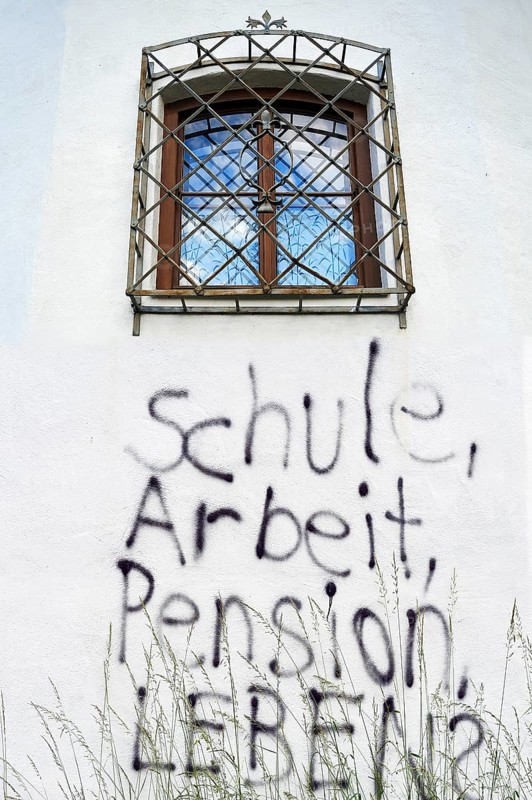 Schule,
Arbeit,
Pension,
LEBEN?